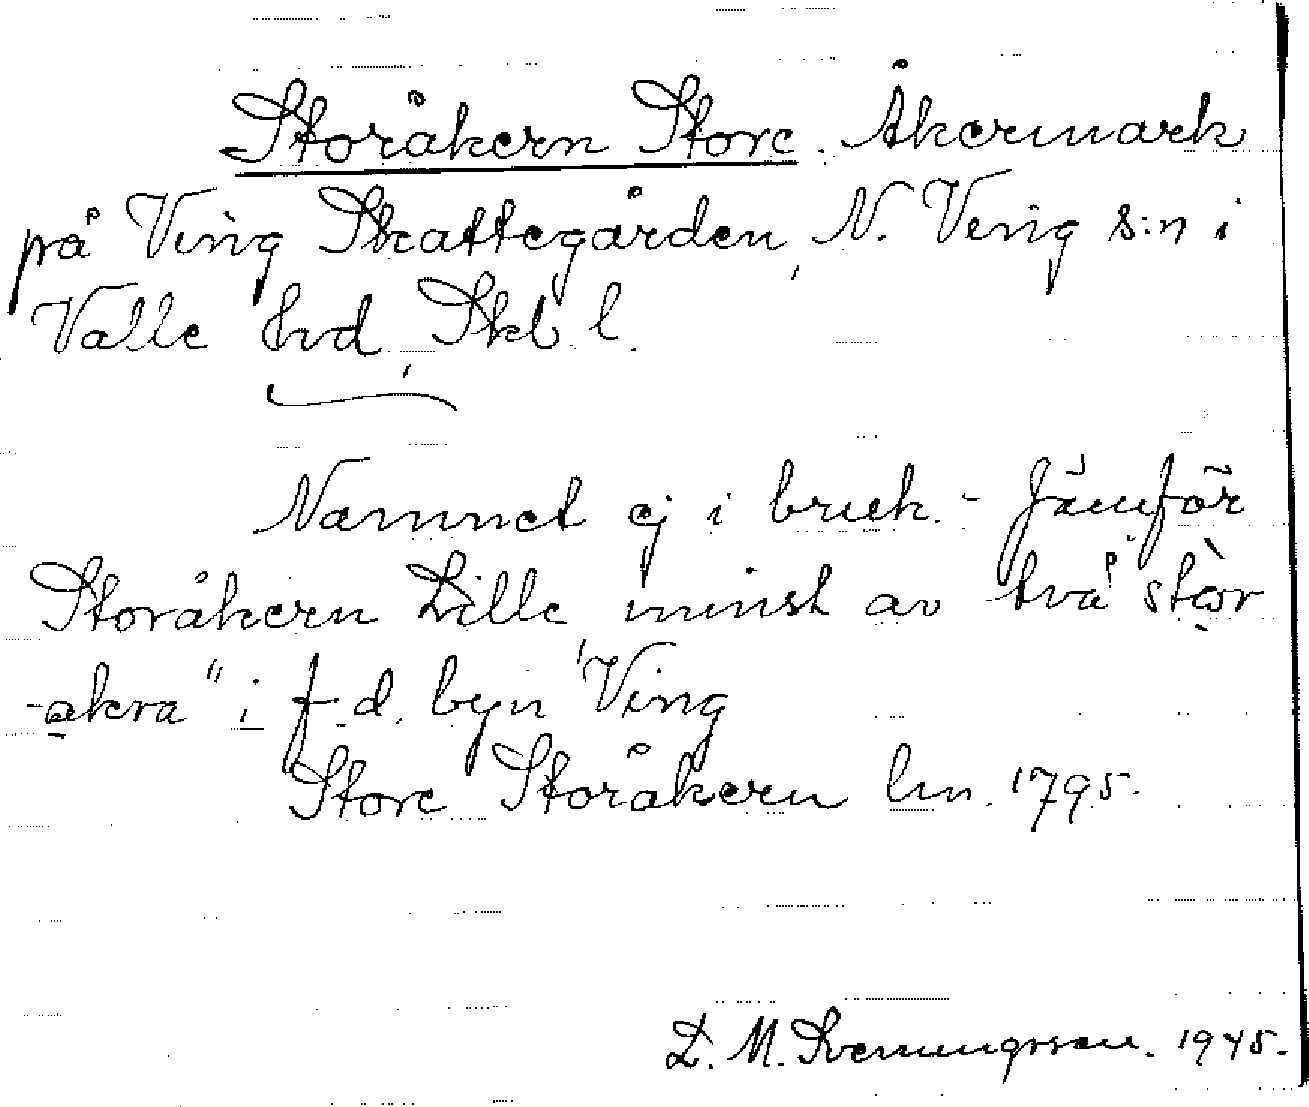 Storåkern Store. Åkermark
på Ving Skattegården, N. Ving s:n i
Valle hd, Skb. l.
Namnet ej i bruk. - Jämför
Storåkern Lille, minst av två "stòr
-akra" i f.d. byn Ving
Store Storåkern lm. 1795.
L. M. Svenungsson. 1945.